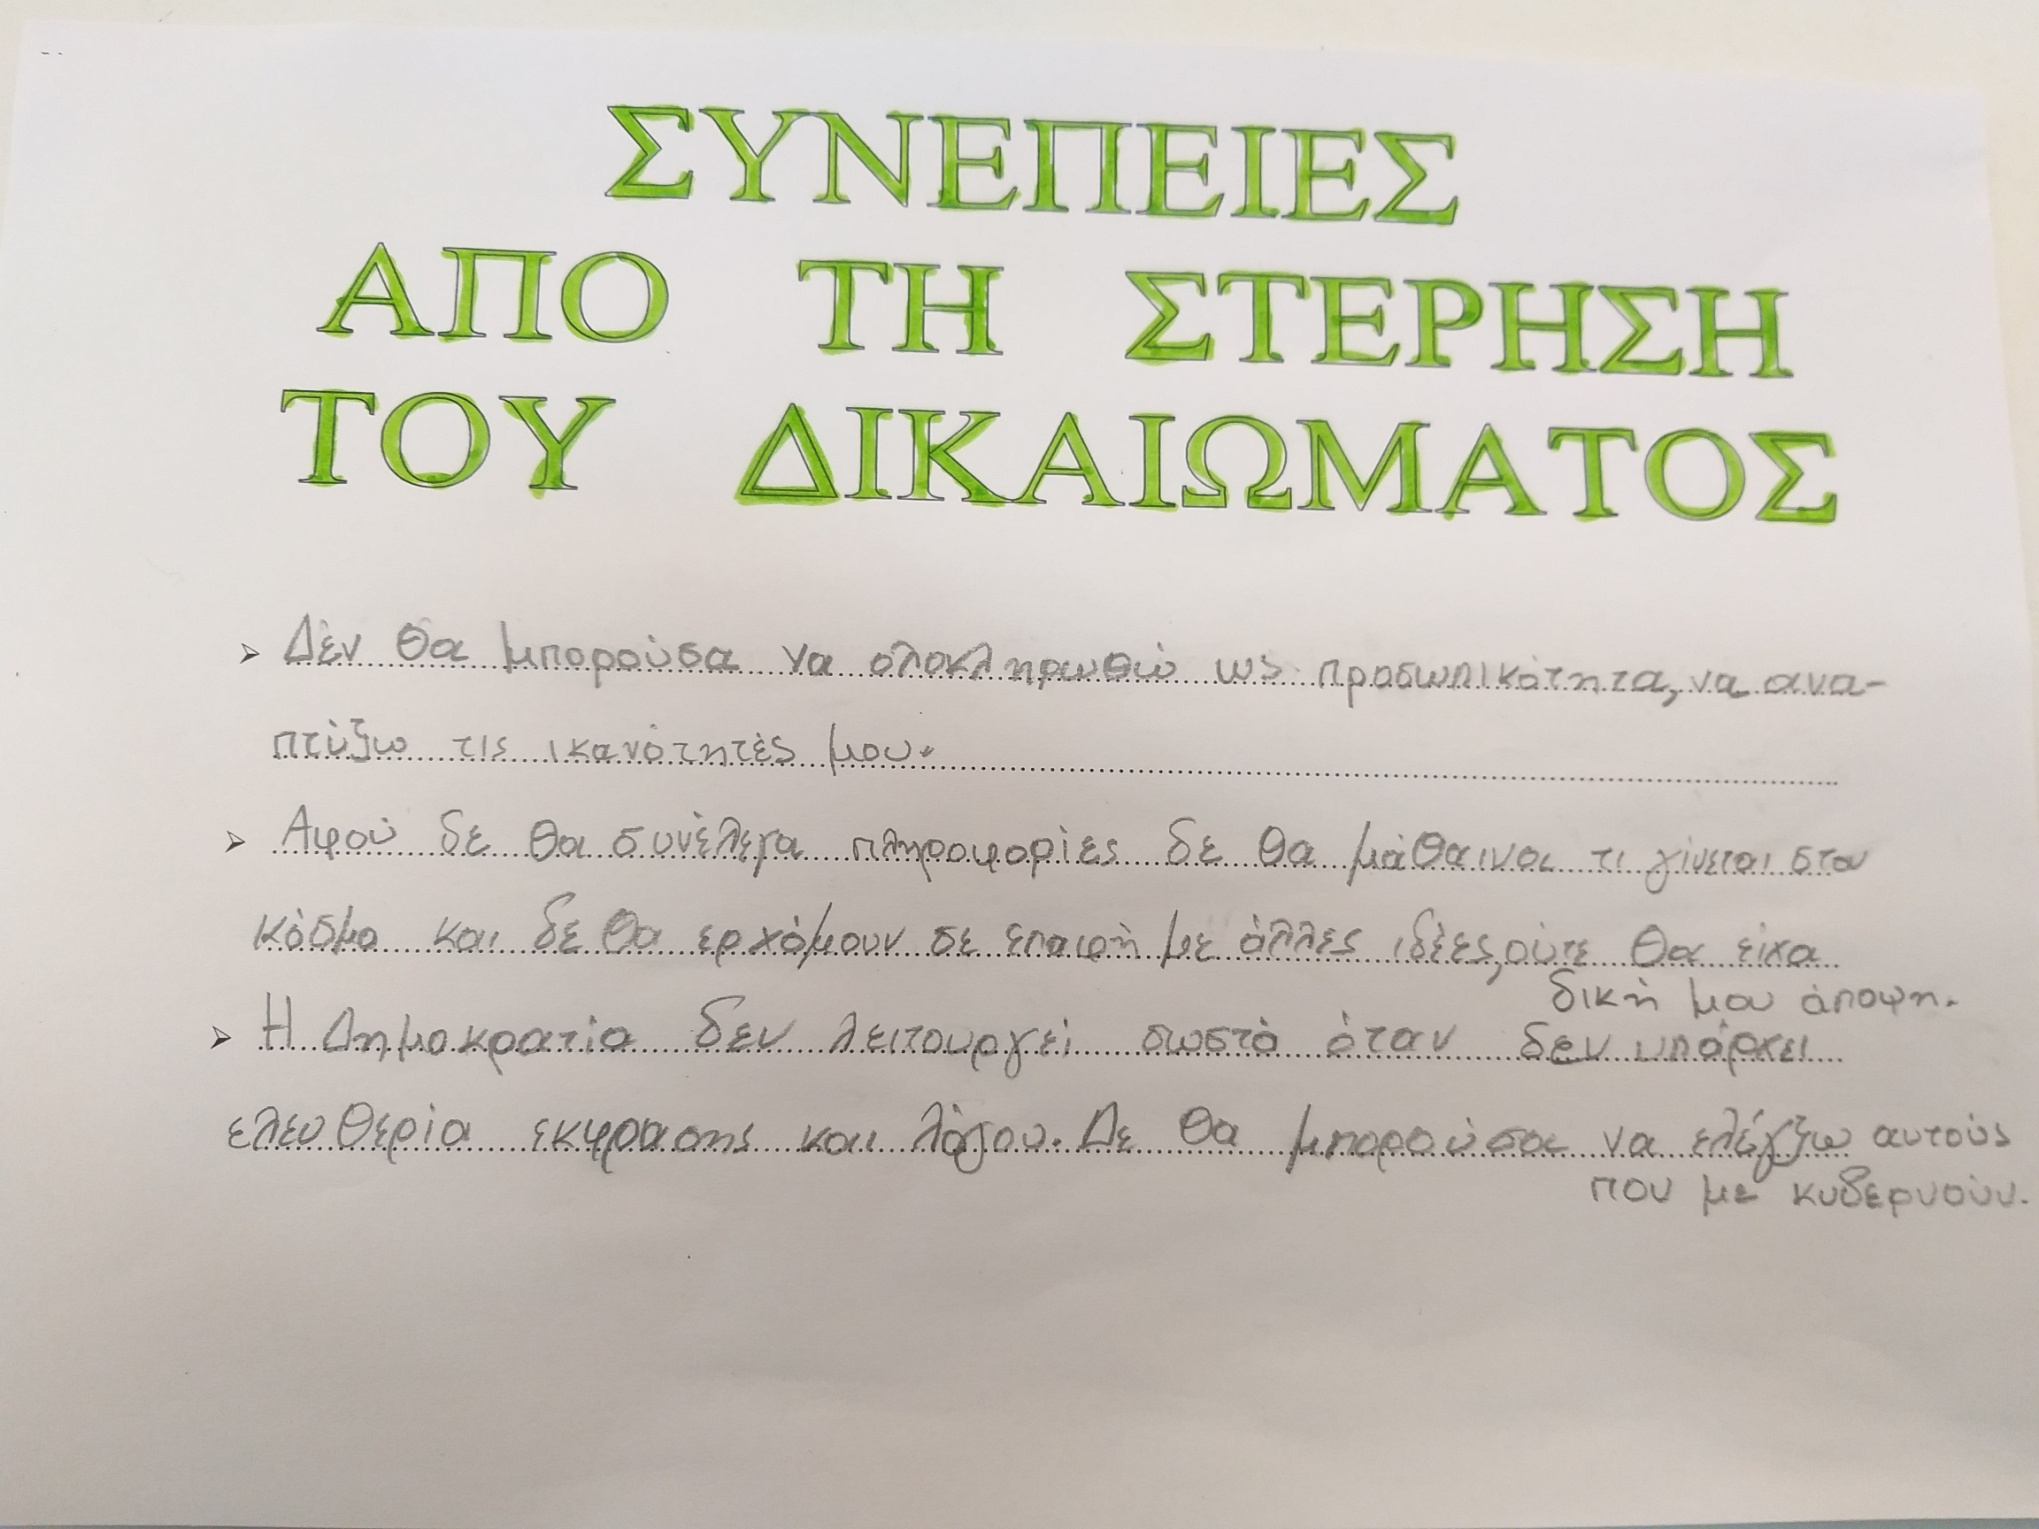 ΣΥΝΕΠΕΙΕΣ
ΑΠΟ ΤΗ ΣΤΕΡΗΣΗ
ΤΟΥ ΔΙΚΑΙΩΜΑΤΟΣ
➢ Δέν θα μπορούσα να ολοκληρωθώ ως προσωπικότητα, να ανα-
πτύξω τις ικανότητές μου.
➢ Αφού δε θα συνέλεγα πληροφορίες δε θα μάθαινα τι γίνεται στον
κόσμο και δε θα ερχόμουν σε επαφή με άλλες ιδέες, ούτε θα είχα
δική μου άποψη.
➢ Η Δημοκρατία δεν λειτουργεί σωστά όταν δεν υπάρχει
ελευθερία έκφρασης και λόγου. Δε θα μπορούσα να ελέγξω αυτούς
που με κυβερνούν.